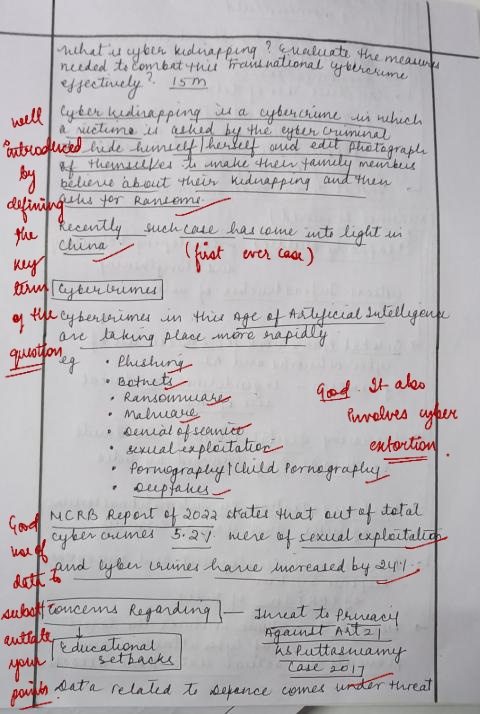 What is cyber kidnapping? Evaluate the measures
needed to combat this Transnational cybercrime
effectively? 15M
Cyber kidnapping is a cybercrime in which
a victim is asked by the cyber criminal
to hide himself/herself and edit photograph
of themselves to make their family members
believe about their kidnapping and then
asks for Ransom.
Recently such case has come into light in
China.
(first ever case)
well
introduced
by
defining
the
key
term
of the
question
Cybercrimes
Cybercrimes in this Age of Artificial Intelligence
are taking place more rapidly.
eg • Phishing
• Botnets
• Ransomware
• Malware
• Denial of service
• Sexual exploitation
• Pornography/Child Pornography
• Deepfakes
Good. It also
involves cyber
extortion.
NCRB Report of 2022 states that out of total
cyber crimes 5.2% were of sexual exploitation
and cyber crimes have increased by 24%.
Good
use of
data to
substantiate
your
points
Concerns Regarding — Threat to Privacy
Against Art 21
KS Puttaswamy
Case 2017
Educational
setbacks
Data related to Defence comes under threat